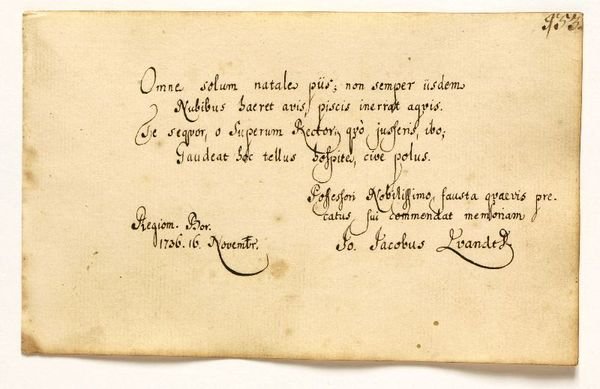 453.
Omne solum natale piis; non semper iisdem
Nubibus haeret avis, piscis inerrat aqvis.
Te seqvor, o Superum Rector, qvò jusseris, ibo;
Gaudeat hoc tellus hospite, cive polus.
Possessori Nobilissimo, fausta qvaevis pre-
catus, sui commendat memoriam
Regiom. Bor.
1736. 16. Novembr.
Jo. Jacobus